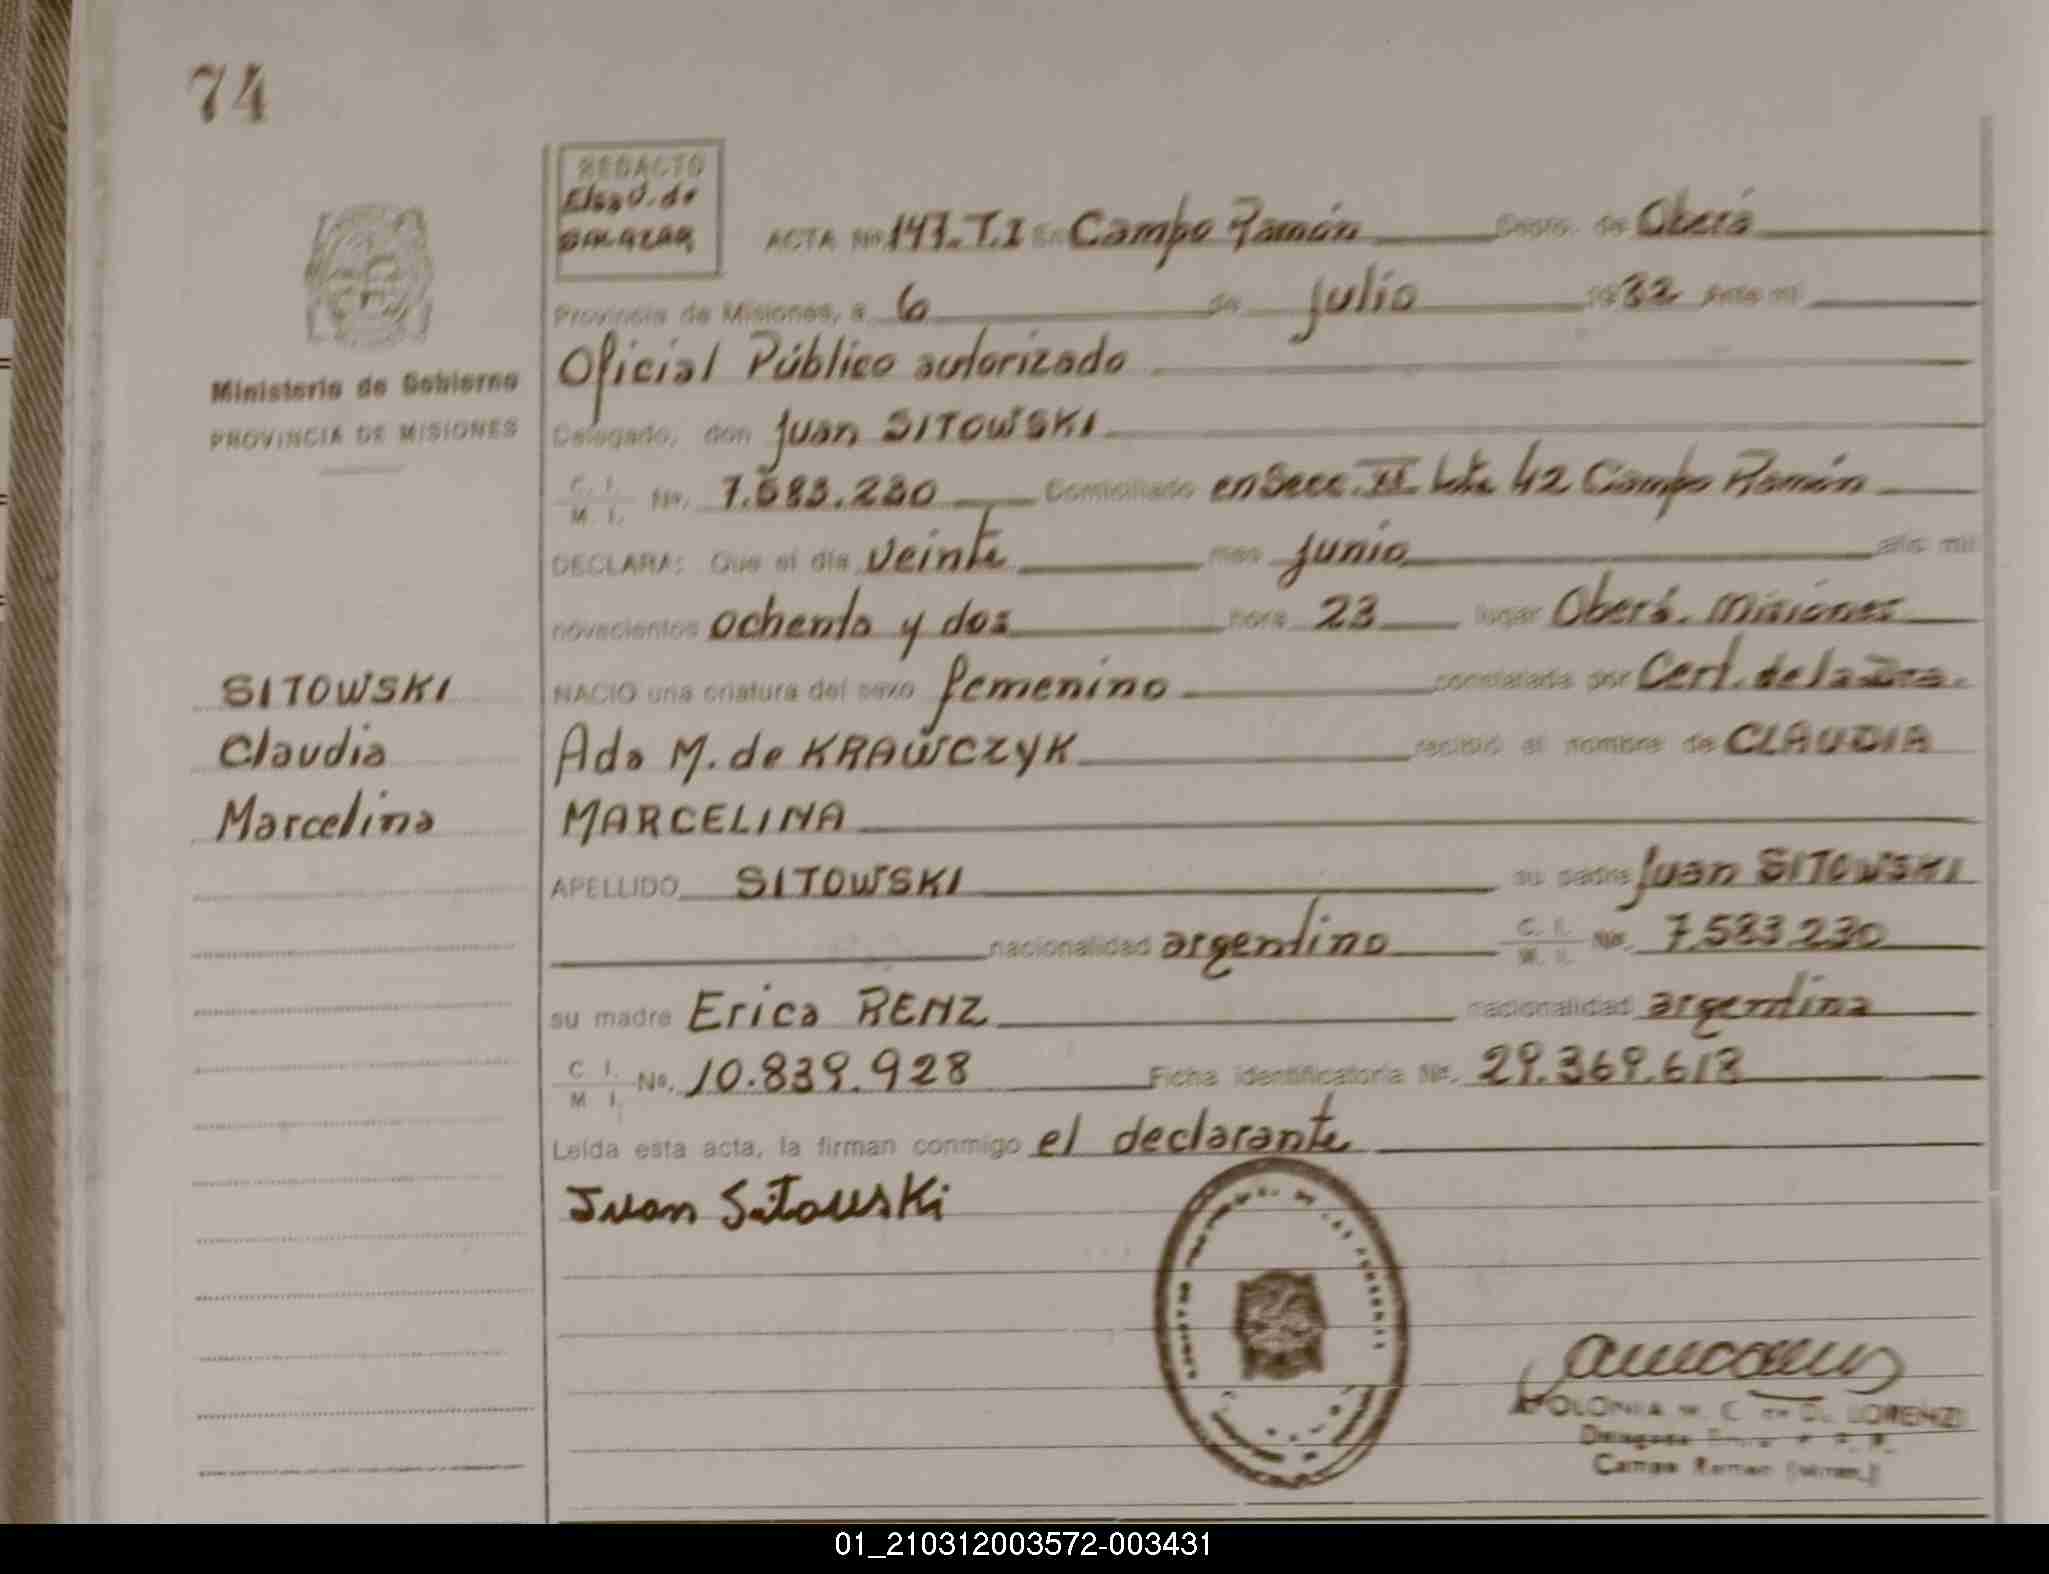 74
REDACTO
Elsa O. de
ACTA No. 147. T. I En Campo Ramón Depto. de Oberá
Provincia de Misiones, a 6 de julio 1982 Ante mí
Oficial Público autorizado
Delegado, don Juan SITOWSKI
C. I.
M. I. No. 7.583.230 Domiciliado en Secc. II Lote 42 Campo Ramón
DECLARA: Que el día veinte mes junio año mil
novecientos ochenta y dos hora 23 lugar Oberá. Misiones
NACIO una criatura del sexo femenino constatada por Cert. de la Dra.
Ada M. de KRAWCZYK recibió el nombre de CLAUDIA
MARCELINA
APELLIDO SITOWSKI su padre Juan SITOWSKI
nacionalidad argentino C. I.
M. I. No. 7.583.230
su madre Erica RENZ nacionalidad argentina
C. I.
M. I. No. 10.839.928 Ficha identificatoria No. 29.369.618
Leída esta acta, la firman conmigo el declarante
Juan Sitowski
Ministerio de Gobierno
PROVINCIA DE MISIONES
SITOWSKI
Claudia
Marcelina
APOLONIA M. C. DE DI LORENZI
Delegada
Campo Ramon
01_210312003572-003431